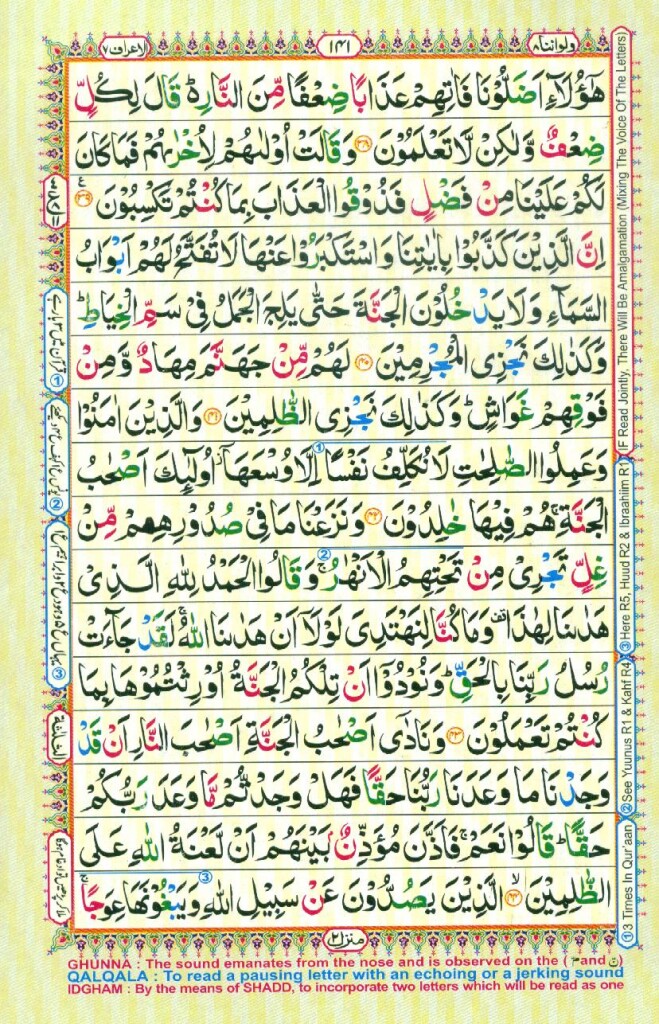 ولواننا ۸ ۱۴۱ الاعراف ۷
هٰٓؤُلَآءِ اَضَلُّوْنَا فَاٰتِهِمْ عَذَابًا ضِعْفًا مِّنَ النَّارِ ؕ قَالَ لِكُلٍّ
ضِعْفٌ وَّلٰكِنْ لَّا تَعْلَمُوْنَ ﴿۳۸﴾ وَقَالَتْ اُوْلٰىهُمْ لِاُخْرٰىهُمْ فَمَا كَانَ
لَكُمْ عَلَيْنَا مِنْ فَضْلٍ فَذُوْقُوا الْعَذَابَ بِمَا كُنْتُمْ تَكْسِبُوْنَ ﴿۳۹﴾
اِنَّ الَّذِيْنَ كَذَّبُوْا بِاٰيٰتِنَا وَاسْتَكْبَرُوْا عَنْهَا لَا تُفَتَّحُ لَهُمْ اَبْوَابُ
السَّمَآءِ وَلَا يَدْخُلُوْنَ الْجَنَّةَ حَتّٰى يَلِجَ الْجَمَلُ فِيْ سَمِّ الْخِيَاطِ ؕ
وَكَذٰلِكَ نَجْزِى الْمُجْرِمِيْنَ ﴿۴۰﴾ لَهُمْ مِّنْ جَهَنَّمَ مِهَادٌ وَّمِنْ
فَوْقِهِمْ غَوَاشٍ ؕ وَكَذٰلِكَ نَجْزِى الظّٰلِمِيْنَ ﴿۴۱﴾ وَالَّذِيْنَ اٰمَنُوْا
وَعَمِلُوا الصّٰلِحٰتِ لَا نُكَلِّفُ نَفْسًا اِلَّا وُسْعَهَاۤ ۫ اُولٰٓئِكَ اَصْحٰبُ
الْجَنَّةِ ۚ هُمْ فِيْهَا خٰلِدُوْنَ ﴿۴۲﴾ وَنَزَعْنَا مَا فِيْ صُدُوْرِهِمْ مِّنْ
غِلٍّ تَجْرِيْ مِنْ تَحْتِهِمُ الْاَنْهٰرُ ۚ وَقَالُوا الْحَمْدُ لِلّٰهِ الَّذِيْ
هَدٰىنَا لِهٰذَا ۟ وَمَا كُنَّا لِنَهْتَدِيَ لَوْلَاۤ اَنْ هَدٰىنَا اللّٰهُ ۚ لَقَدْ جَآءَتْ
رُسُلُ رَبِّنَا بِالْحَقِّ ؕ وَنُوْدُوْۤا اَنْ تِلْكُمُ الْجَنَّةُ اُوْرِثْتُمُوْهَا بِمَا
كُنْتُمْ تَعْمَلُوْنَ ﴿۴۳﴾ وَنَادٰۤى اَصْحٰبُ الْجَنَّةِ اَصْحٰبَ النَّارِ اَنْ قَدْ
وَجَدْنَا مَا وَعَدَنَا رَبُّنَا حَقًّا فَهَلْ وَجَدْتُّمْ مَّا وَعَدَ رَبُّكُمْ
حَقًّا ؕ قَالُوْا نَعَمْ ۚ فَاَذَّنَ مُؤَذِّنٌۢ بَيْنَهُمْ اَنْ لَّعْنَةُ اللّٰهِ عَلَى
الظّٰلِمِيْنَ ﴿۴۴﴾ الَّذِيْنَ يَصُدُّوْنَ عَنْ سَبِيْلِ اللّٰهِ وَيَبْغُوْنَهَا عِوَجًا ۚ
منزل ۲
① 3 Times In Qur'aan ② See Yuunus R1 & Kahf R4 ③ Here R5, Huud R2 & Ibraahiim R1 (IF Read Jointly, There Will Be Amalgamation (Mixing The Voice Of The Letters)
GHUNNA : The sound emanates from the nose and is observed on the ( م and ن)
QALQALA : To read a pausing letter with an echoing or a jerking sound
IDGHAM : By the means of SHADD, to incorporate two letters which will be read as one